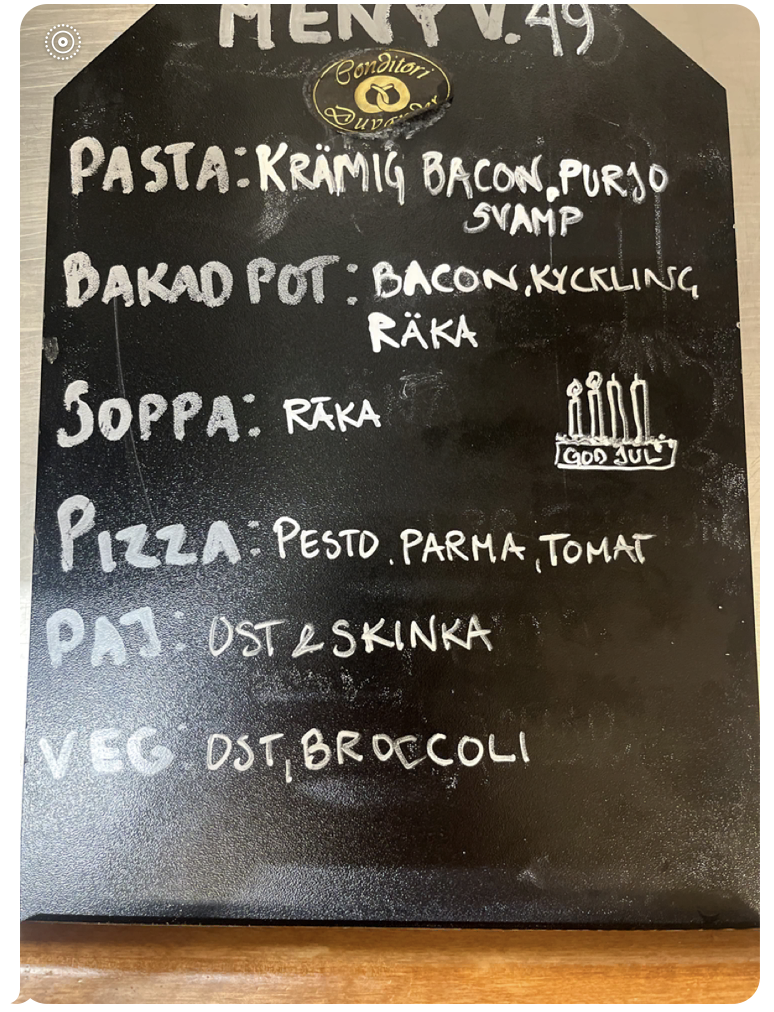 MENY V.49
Conditori
PASTA: KRÄMIG BACON, PURJO
SVAMP
BAKAD POT: BACON, KYCKLING
RÄKA
SOPPA: RÄKA
GOD JUL
PIZZA: PESTO, PARMA, TOMAT
PAJ: OST & SKINKA
VEG: OST, BROCCOLI